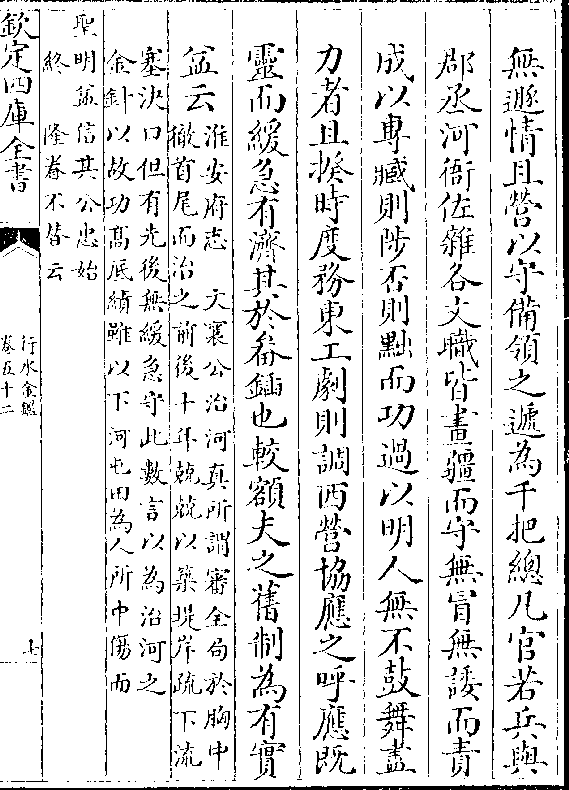 無遯情且營以守備領之遞為千把總凡官若兵與
郡丞河衙佐雜各文職皆畫疆而守無冒無諉而責
成以專臧則陟否則黜而功過以明人無不鼓舞盡
力者且揆時度務東工劇則調西營協應之呼應既
靈而緩急有濟其於畚鍤也較額夫之舊制為有實
益云
淮安府志 文襄公治河真所謂審全局於胸中
徹首尾而治之前後十年兢兢以築堤岸疏下流
塞決口但有先後無緩急守此數言以為治河之
金針以故功高底績雖以下河屯田為人所中傷而
聖明益信其公忠始
終 隆眷不替云
欽定四庫全書
行水金鑑
卷五十二
七